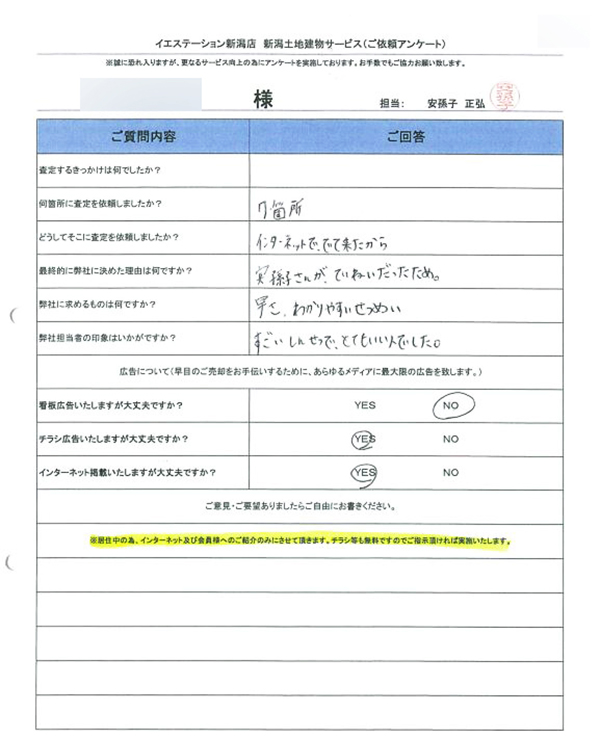 イエステーション新潟店 新潟土地建物サービス(ご依頼アンケート)
※誠に恐れ入りますが、更なるサービス向上の為にアンケートを実施しております。お手数でもご協力お願い致します。
様 担当: 安孫子 正弘
ご質問内容 ご回答
査定するきっかけは何でしたか?
何箇所に査定を依頼しましたか? 7箇所
どうしてそこに査定を依頼しましたか? インターネットで、でて来たから
最終的に弊社に決めた理由は何ですか? 安孫子さんが、ていねいだったため。
弊社に求めるものは何ですか? 早さ、わかりやすいせつめい
弊社担当者の印象はいかがですか? すごいしんせつで、とてもいい人でした。
広告について(早目のご売却をお手伝いするために、あらゆるメディアに最大限の広告を致します。)
看板広告いたしますが大丈夫ですか? YES NO
チラシ広告いたしますが大丈夫ですか? YES NO
インターネット掲載いたしますが大丈夫ですか? YES NO
ご意見・ご要望ありましたらご自由にお書きください。
※居住中の為、インターネット及び会員様へのご紹介のみにさせて頂きます。チラシ等も無料ですのでご指示頂ければ実施いたします。